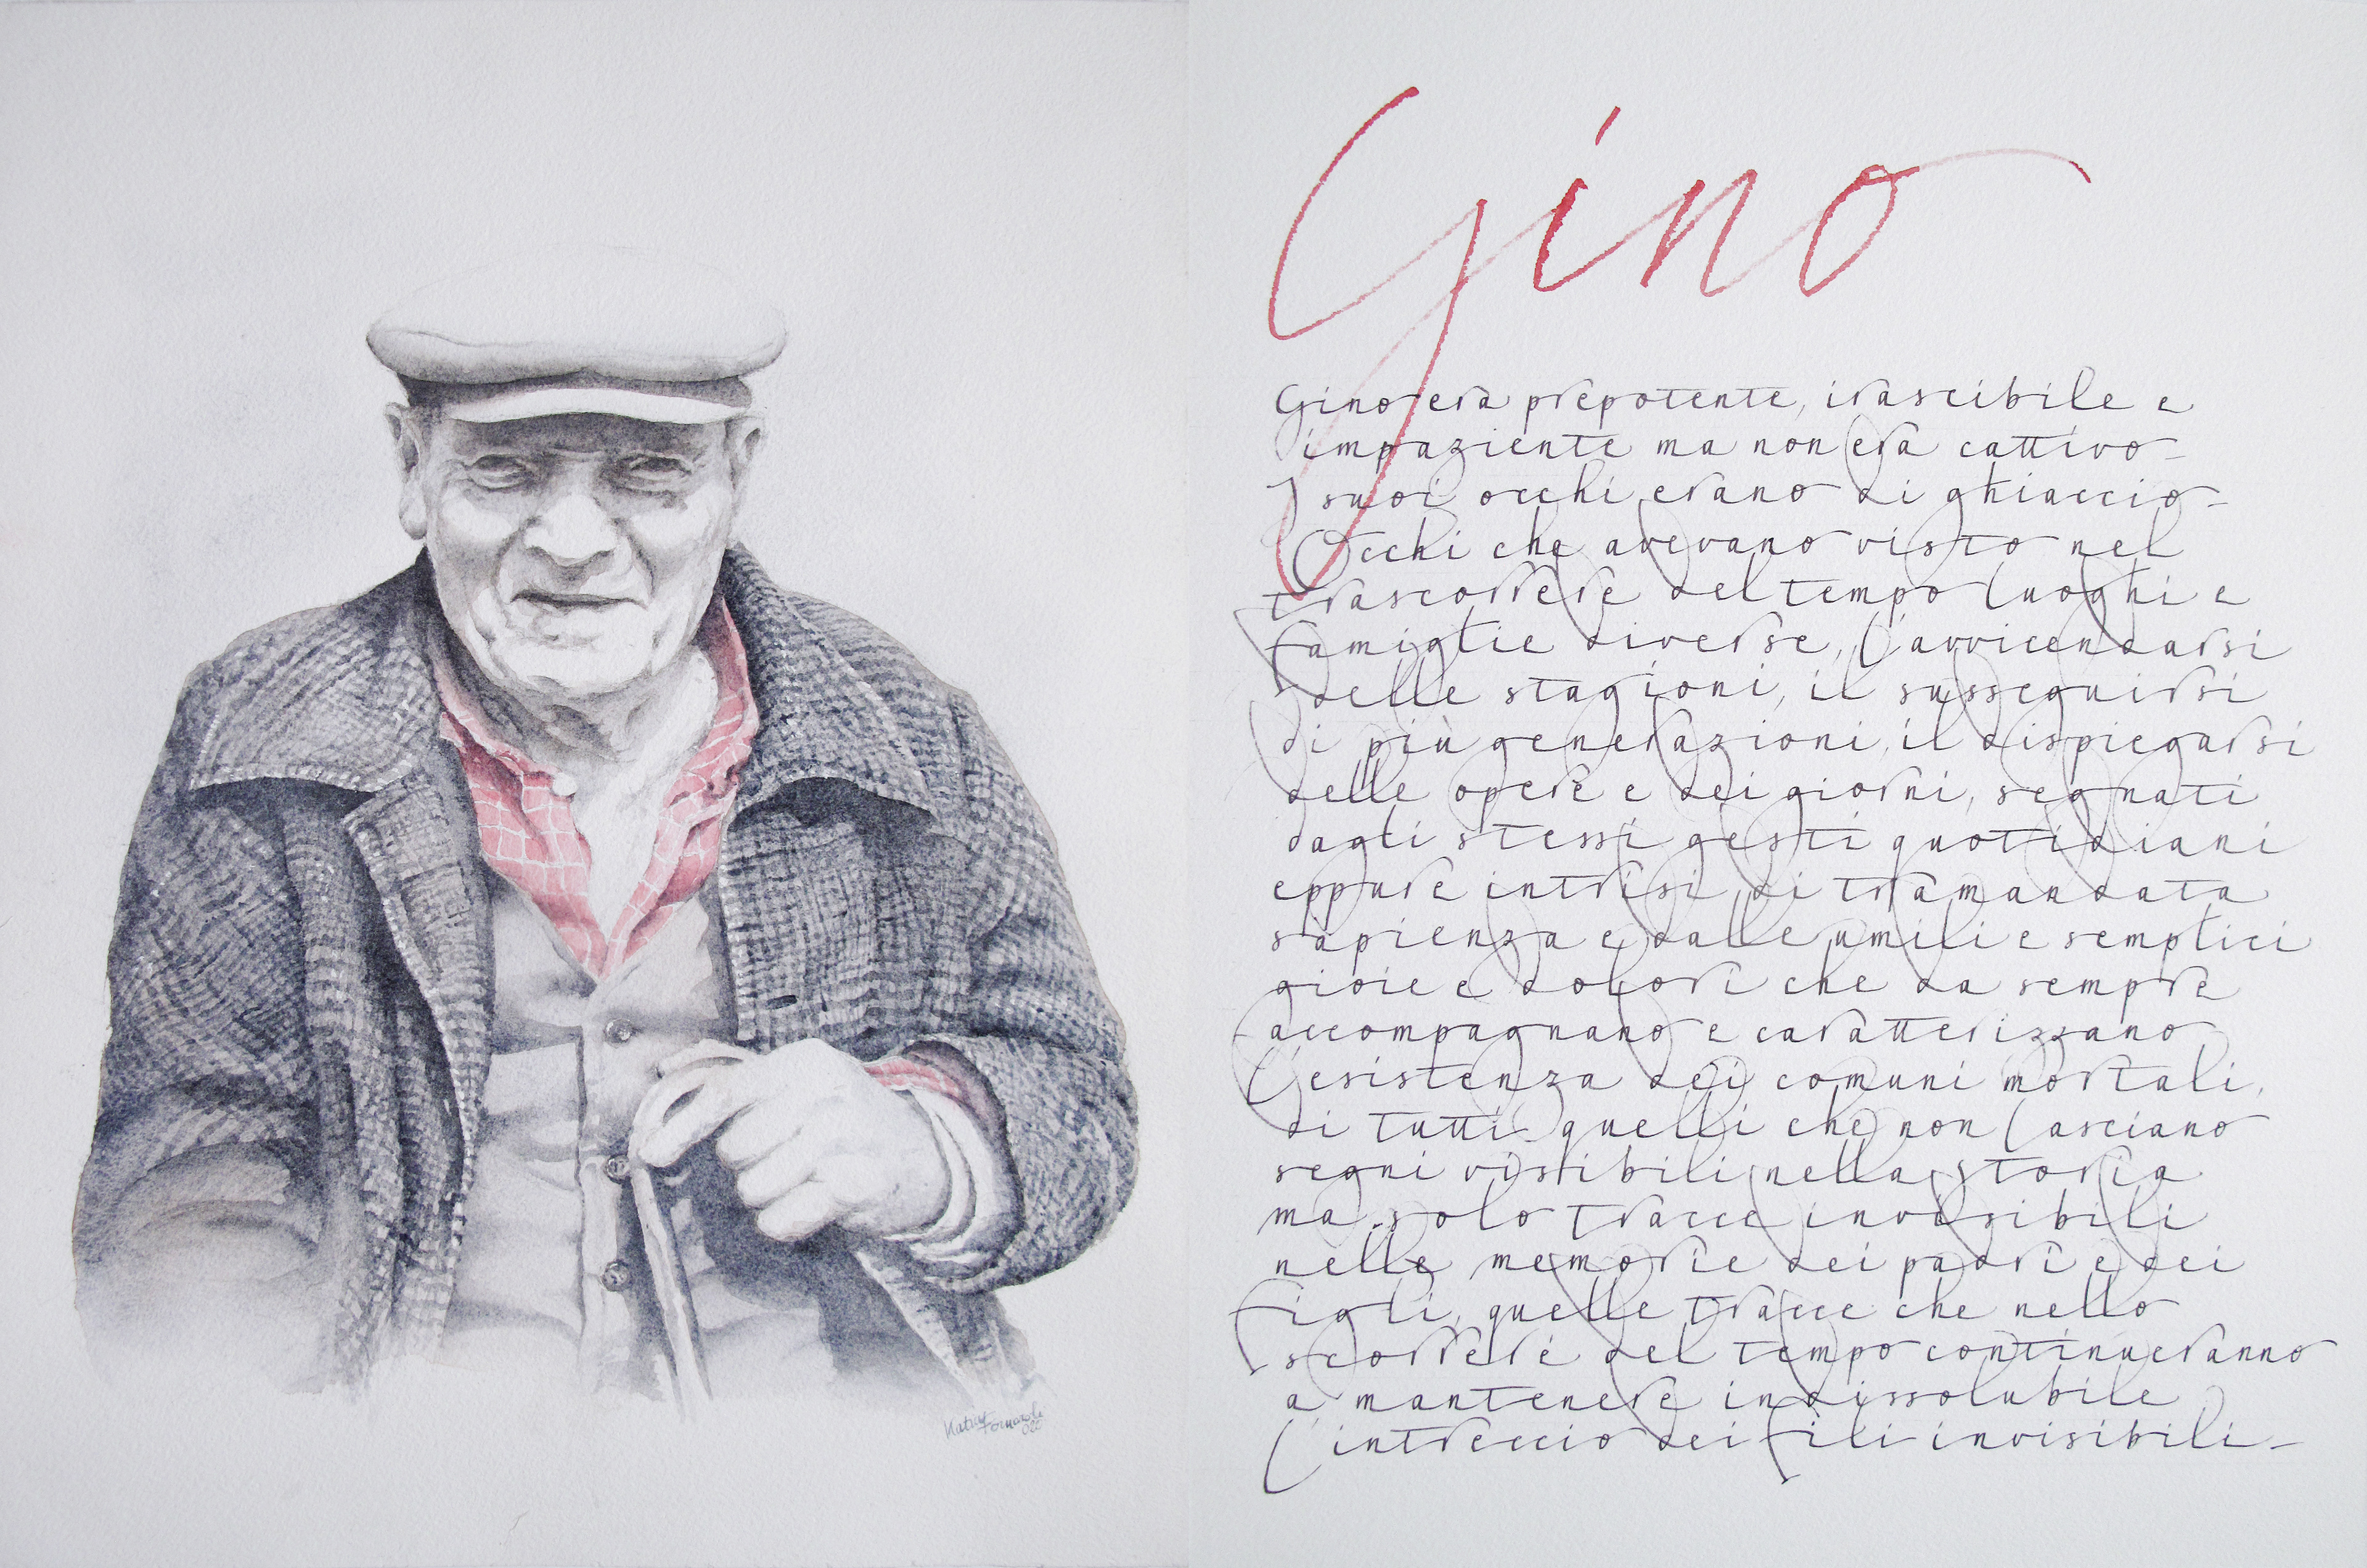 Gino
Gino era prepotente, irascibile e
impaziente ma non era cattivo-
I suoi occhi erano di ghiaccio-
Occhi che avevano visto nel
trascorrere del tempo luoghi e
famiglie diverse, l'avvicendarsi
delle stagioni, il susseguirsi
di più generazioni, il dispiegarsi
delle opere e dei giorni, segnati
dagli stessi gesti quotidiani
eppure intrisi di tramandata
sapienza e dalle umili e semplici
gioie e dolori che da sempre
accompagnano e caratterizzano
l'esistenza dei comuni mortali,
di tutti quelli che non lasciano
segni visibili nella storia
ma solo tracce invisibili
nelle memorie dei padri e dei
figli, quelle tracce che nello
scorrere del tempo continueranno
a mantenere indissolubile
l'intreccio dei fili invisibili-